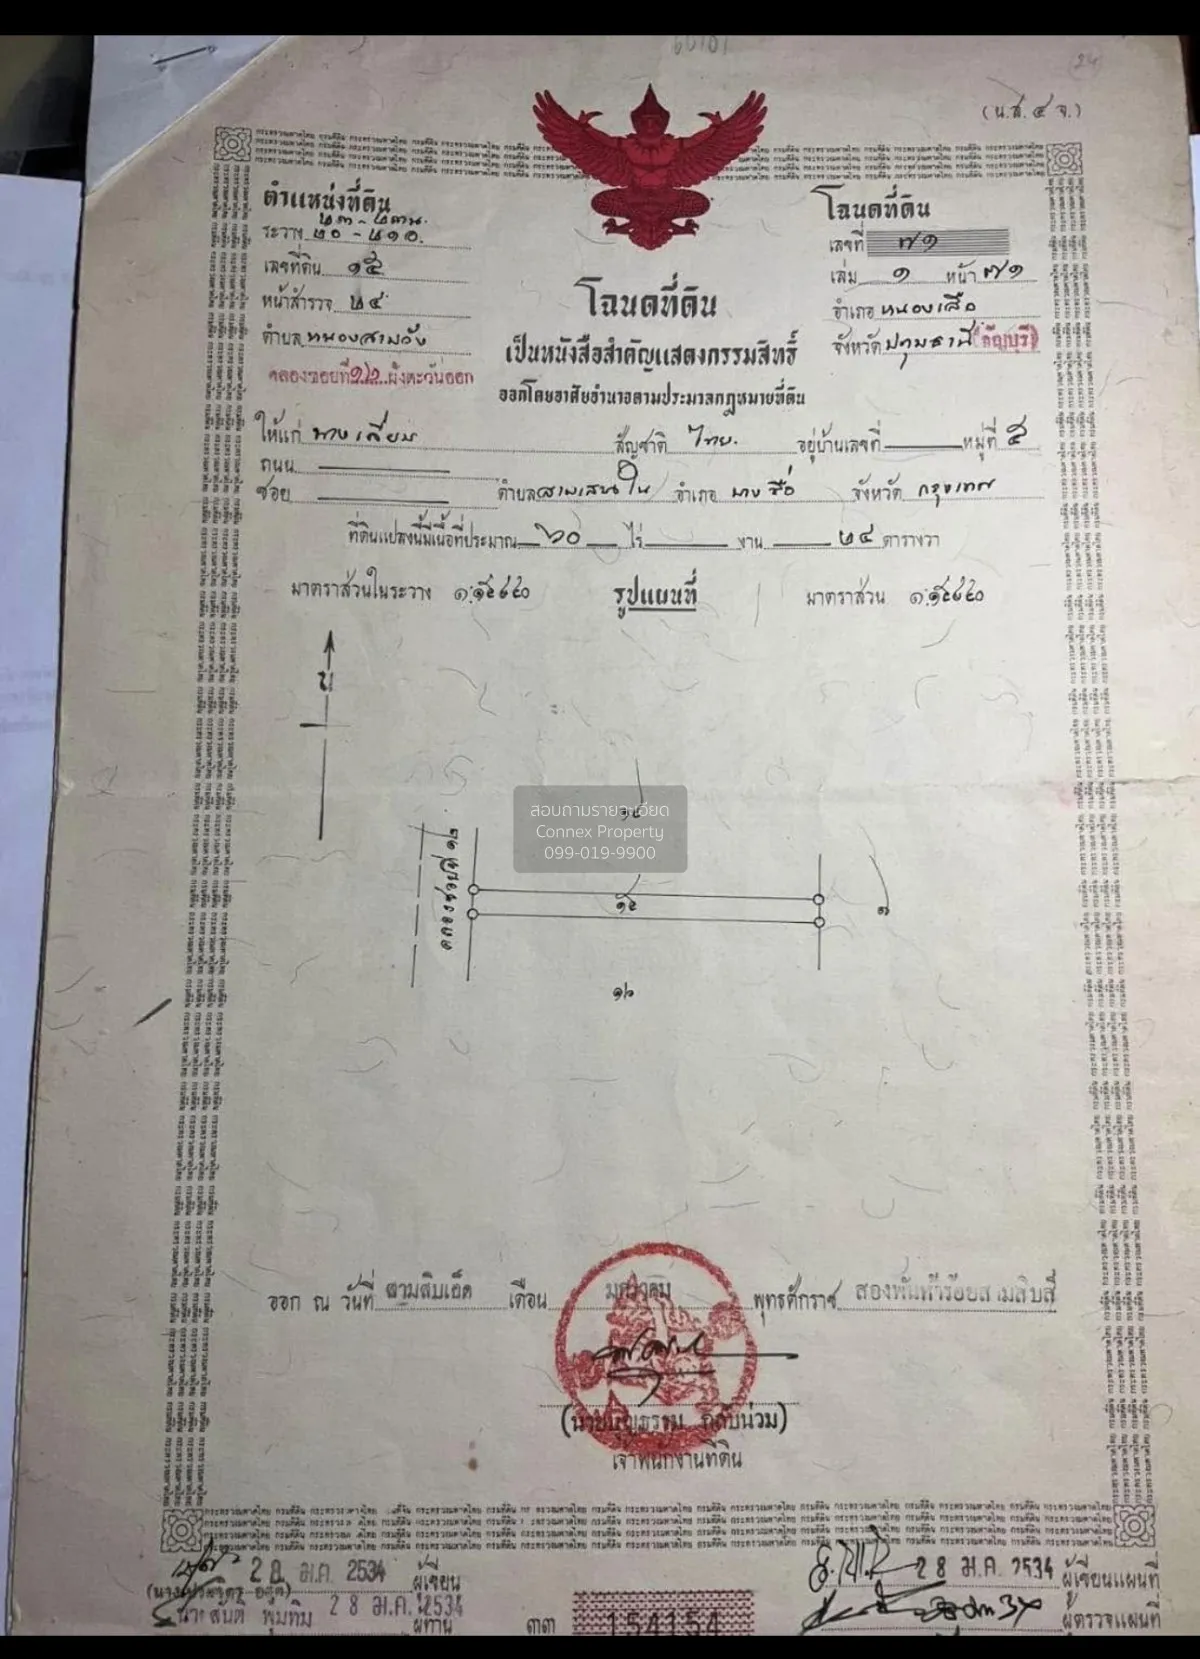 (น.ส. ๔ จ.)
ตำแหน่งที่ดิน
ระวาง ๒๐ - ๒๑๐.
เลขที่ดิน ๑๕
หน้าสำรวจ ๒๔
ตำบล หนองสามวัง
คลองซอยที่ ๑๒ ฝั่งตะวันออก
โฉนดที่ดิน
เลขที่ ๗๑
เล่ม ๑ หน้า ๗๑
อำเภอ หนองเสือ
จังหวัด ปทุมธานี (ธัญบุรี)
โฉนดที่ดิน
เป็นหนังสือสำคัญแสดงกรรมสิทธิ์
ออกโดยอาศัยอำนาจตามประมวลกฎหมายที่ดิน
ให้แก่ นางเลี่ยน สัญชาติ ไทย. อยู่บ้านเลขที่ หมู่ที่ ๕
ถนน
ซอย ตำบล สามเสนใน อำเภอ บางซื่อ จังหวัด กรุงเทพ
ที่ดินแปลงนี้มีเนื้อที่ประมาณ ๖๐ ไร่ งาน ๒๔ ตารางวา
มาตราส่วนในระวาง รูปแผนที่ มาตราส่วน
น
๑๔
สอบถามรายละเอียด
Connex Property
099-019-9900
คลองซอยที่ ๑๒
๑๕
๑
๑๖
ออก ณ วันที่ สามสิบเอ็ด เดือน มกราคม พุทธศักราช สองพันห้าร้อยสามสิบสี่
(นายบุญธรรม กลับน่วม)
เจ้าพนักงานที่ดิน
28 ม.ค. 2534 ผู้เขียน
นายสันติ พุ่มทิม 28 ม.ค. 2534 ผู้ทาน
28 ม.ค. 2534 ผู้เขียนแผนที่
ผู้ตรวจแผนที่
๓๓ 154154